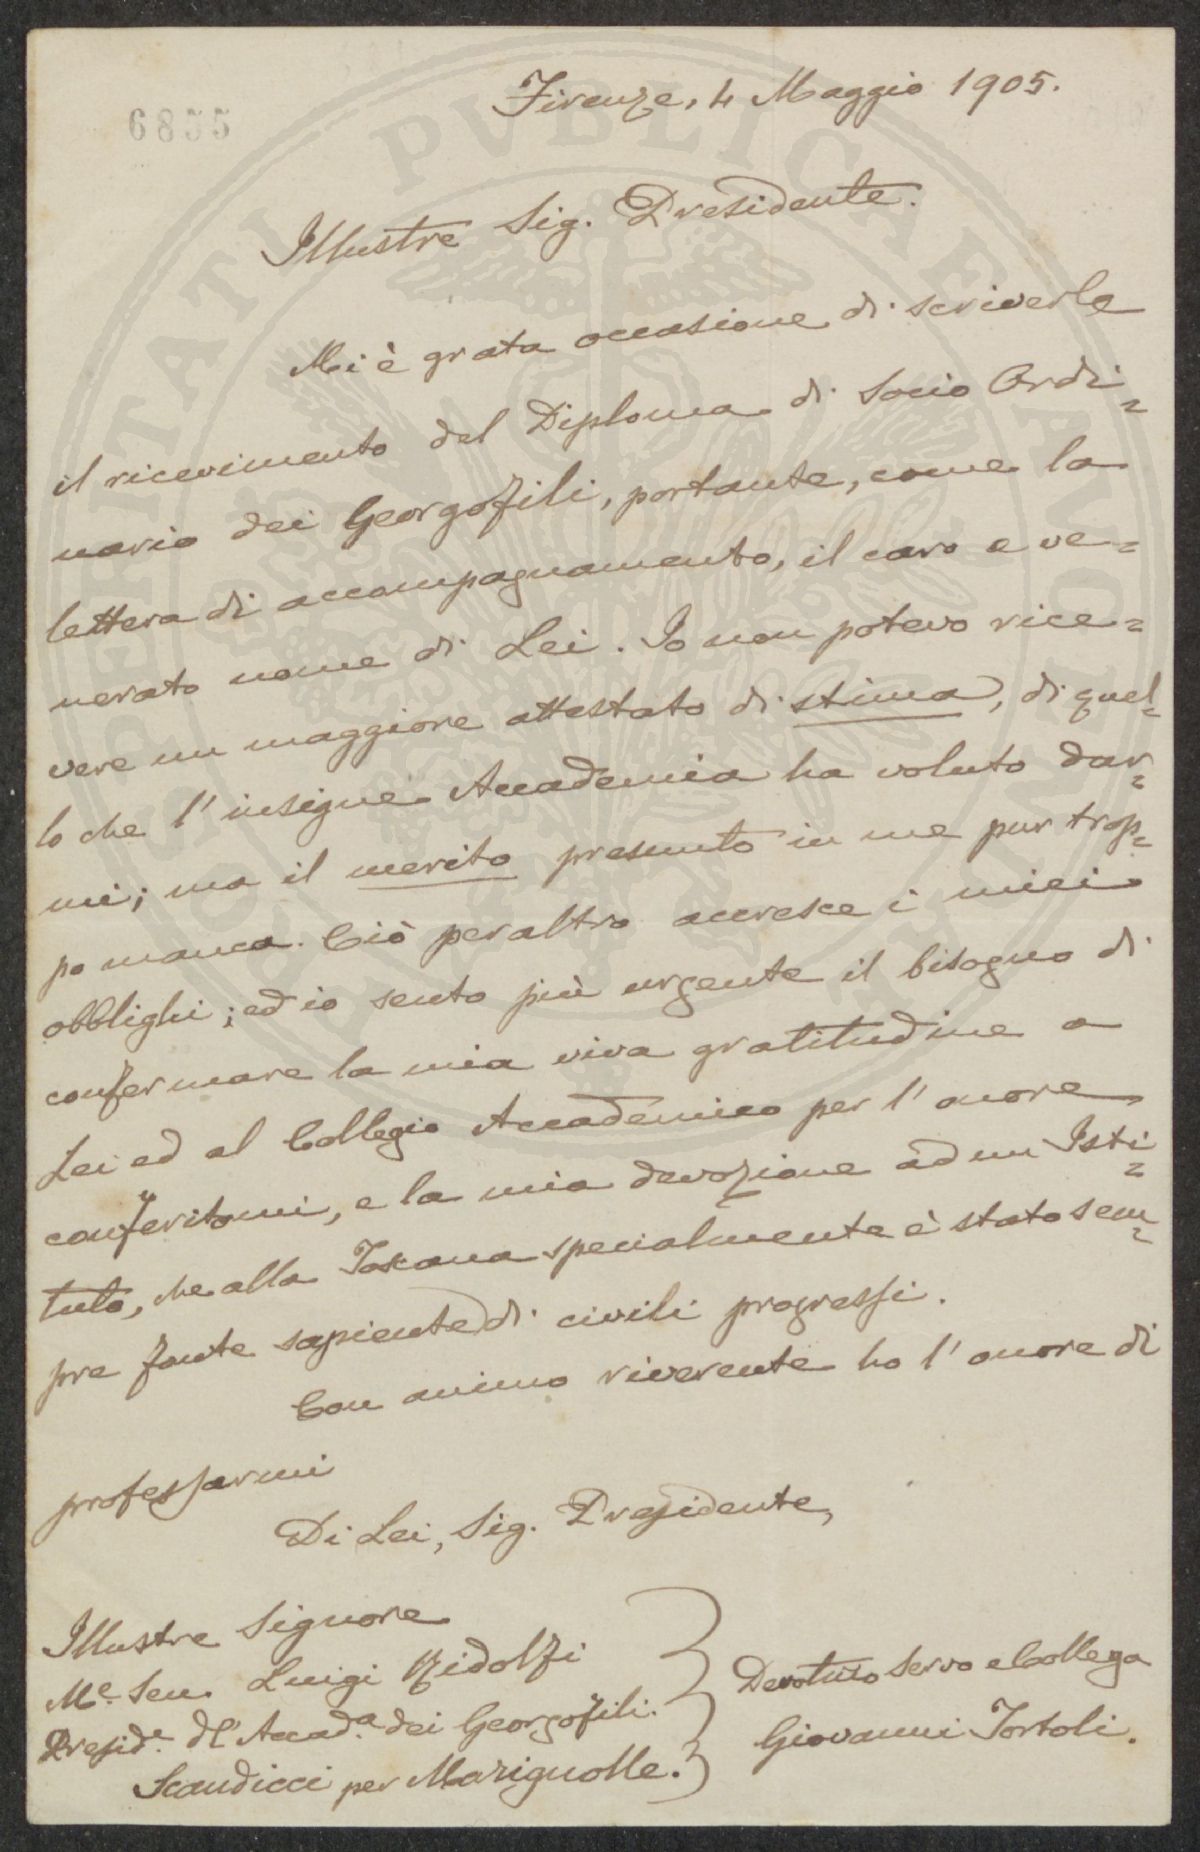 6855
Firenze, 4 Maggio 1905.
Illustre Sig. Presidente.
Mi è grata occasione di scriverle
il ricevimento del Diploma di Socio Ordi=
nario dei Georgofili, portante, come la
lettera di accompagnamento, il caro e ve=
nerato nome di Lei. Io non potevo rice=
vere un maggiore attestato di stima, di quel=
lo che l'insigne Accademia ha voluto dar=
mi; ma il merito presunto in me pur trop=
po manca. Ciò peraltro accresce i miei
obblighi; ed io sento più urgente il bisogno di
confermare la mia viva gratitudine a
Lei ed al Collegio Accademico per l'onore
conferitomi, e la mia devozione ad un Isti=
tuto, che alla Toscana specialmente è stato sem=
pre fonte sapiente di civili progressi.
Con animo riverente ho l'onore di
professarmi
Di Lei, Sig. Presidente,
Illustre Signore
Me. Sen. Luigi Ridolfi
Preside. dl' Accad.a dei Georgofili.
Scandicci per Marignolle.
Devotmo servo e Collega
Giovanni Tortoli.
PVBLICAE